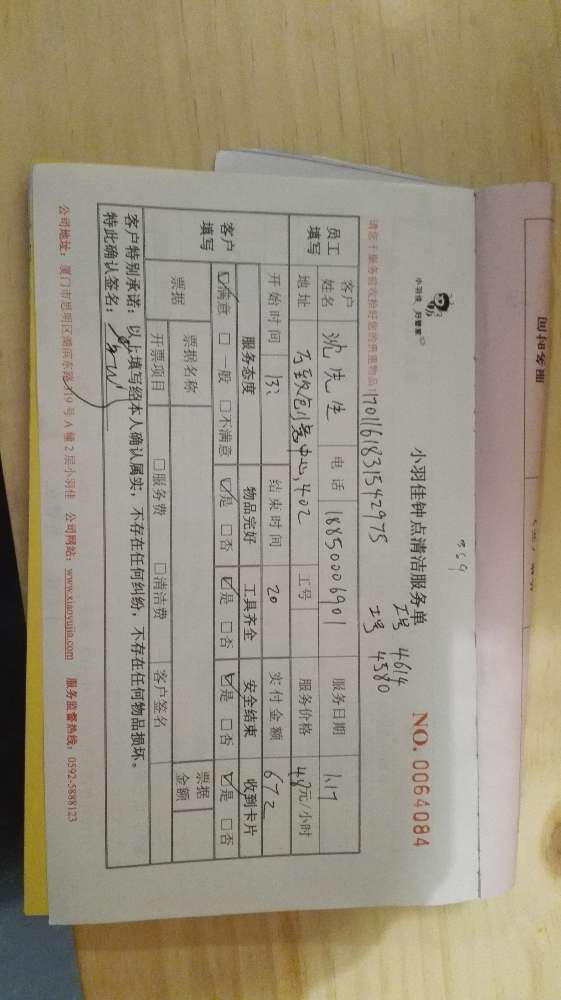 小羽佳 月管家
359
小羽佳钟点清洁服务单
工号 4614
工号 4580
NO. 0064084
1701161831542975
员工填写
客户姓名 沈先生 电话 18850006901 服务日期 1.17
地址 402 工号 服务价格 48元/小时
开始时间 13: 结束时间 20 实付金额 672
客户填写
服务态度 物品完好 工具齐全 安全结束 收到卡片
☑满意 □一般 □不满意 ☑是 □否 ☑是 □否 ☑是 □否 ☑是 □否
票据 票据名称 票据金额
开票项目 □服务费 □清洁费 客户签名
客户特别承诺：以上填写经本人确认属实，不存在任何纠纷，不存在任何物品损坏。
特此确认签名：
公司地址：厦门市思明区湖滨东路319号A幢2层小羽佳 公司网站：www.xiaoyujia.com 服务监督热线：0592-5888123